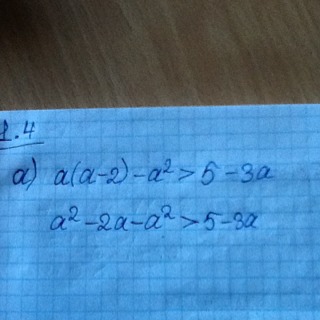 1.4
а) a(a-2)-a²>5-3a
a²-2a-a²>5-3a